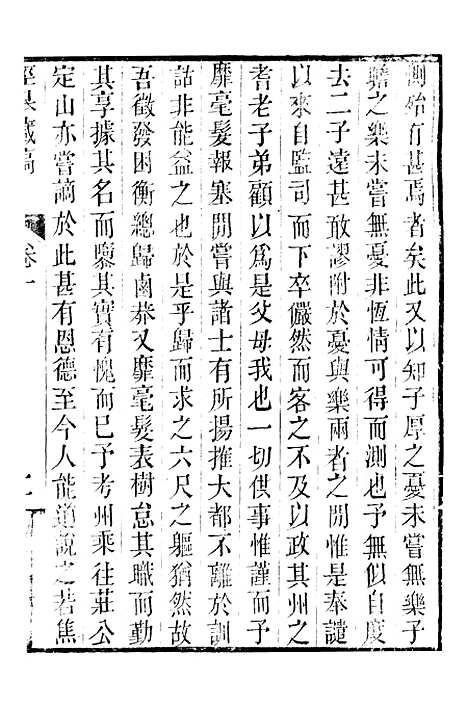 則殆有甚焉者矣此又以知子厚之憂未嘗無樂子
瞻之樂未嘗無憂非恆情可得而測也予無似自度
去二子遠甚敢謬附於憂與樂兩者之閒惟是奉譴
以來自監司而下卒儼然而客之不及以政其州之
耆老子弟顧以爲是父母我也一切供事惟謹而予
靡毫髮報塞閒嘗與諸士有所揚搉大都不離於訓
詁非能益之也於是乎歸而求之六尺之軀猶然故
吾徵發困衡總歸鹵莽又靡毫髮表樹怠其職而勤
其享據其名而鑒其實有愧而已予考州乘往莊公
定山亦嘗謫於此甚有恩德至今人能道說之若焦
藏稿
卷十